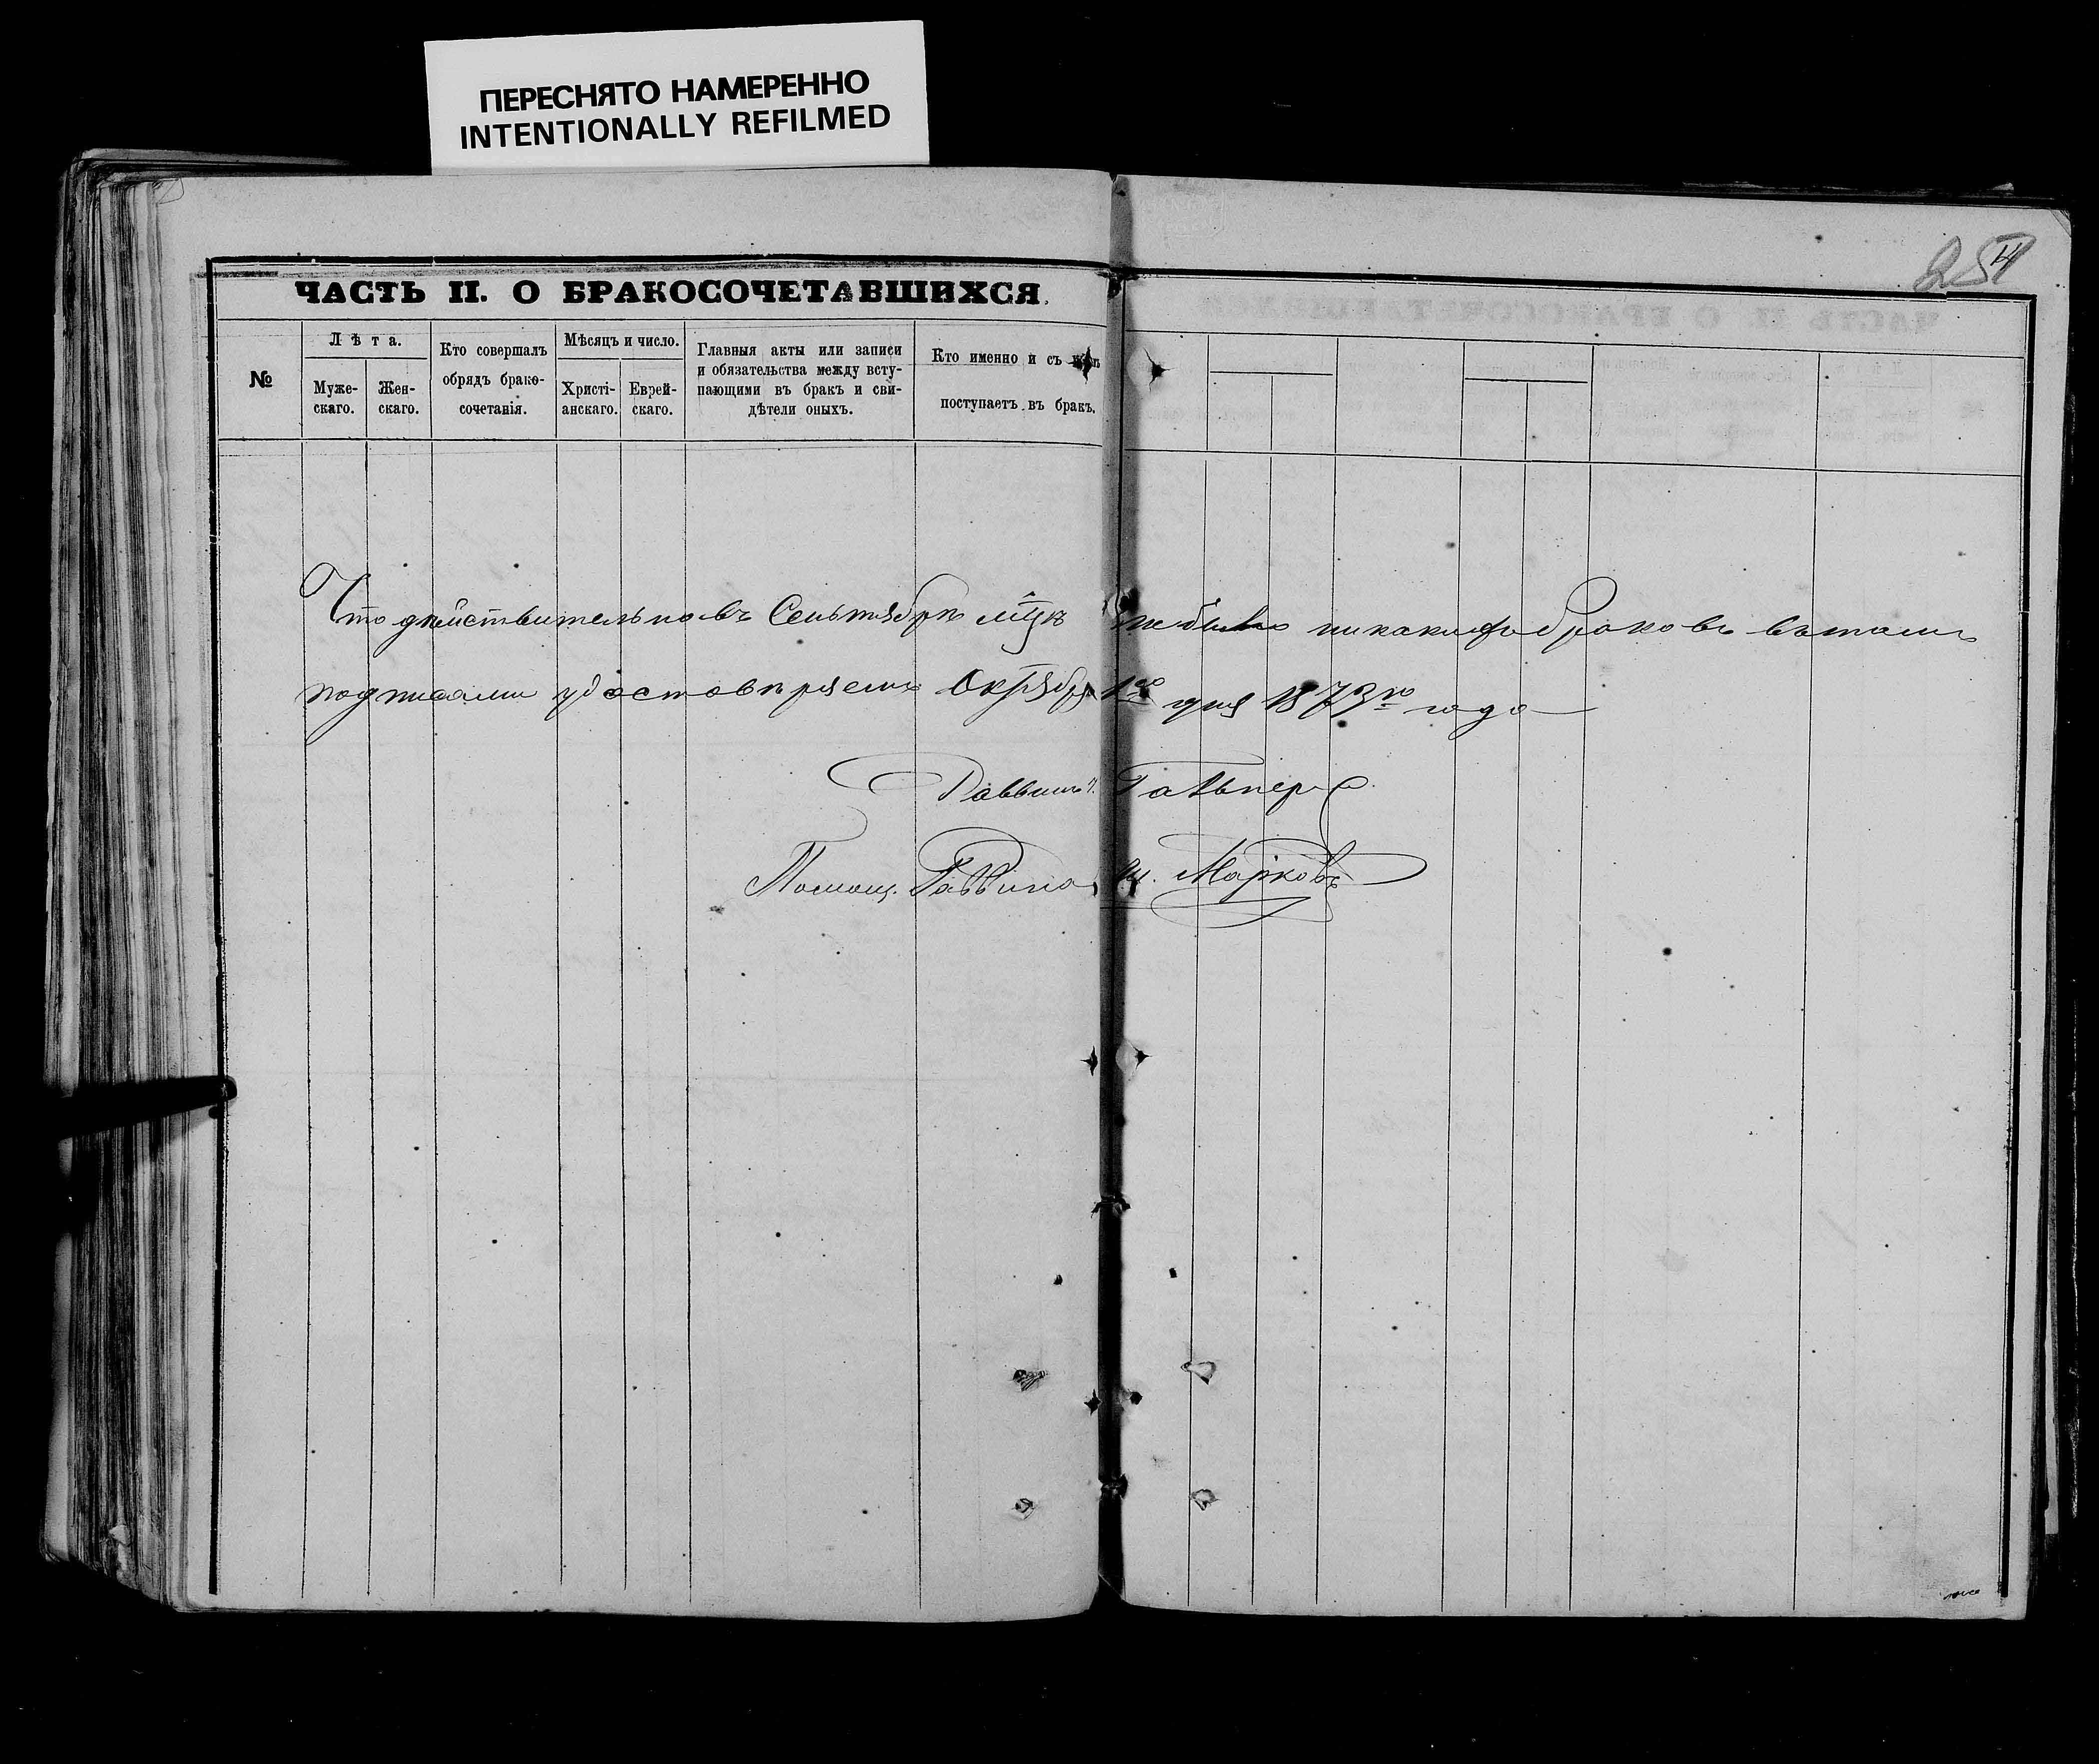 ПЕРЕСНЯТО НАМЕРЕННО
INTENTIONALLY REFILMED
254
ЧАСТЬ II. О БРАКОСОЧЕТАВШИХСЯ.
№
Лѣта.
Муже-
скаго.
Жен-
скаго.
Кто совершалъ
обрядъ брако-
сочетанія.
Мѣсяцъ и число.
Христі-
анскаго.
Еврей-
скаго.
Главныя акты или записи
и обязательства между всту-
пающими въ бракъ и сви-
дѣтели оныхъ.
Кто именно и съ кѣмъ
поступаетъ въ бракъ.
Что действительно въ Сентябрѣ мцѣ не было никакихъ браковъ въ томъ
подписями удостовѣряемъ Октября 1го дня 1873го года
Раввинъ Гальпер
Помощ. Раввина Марковъ